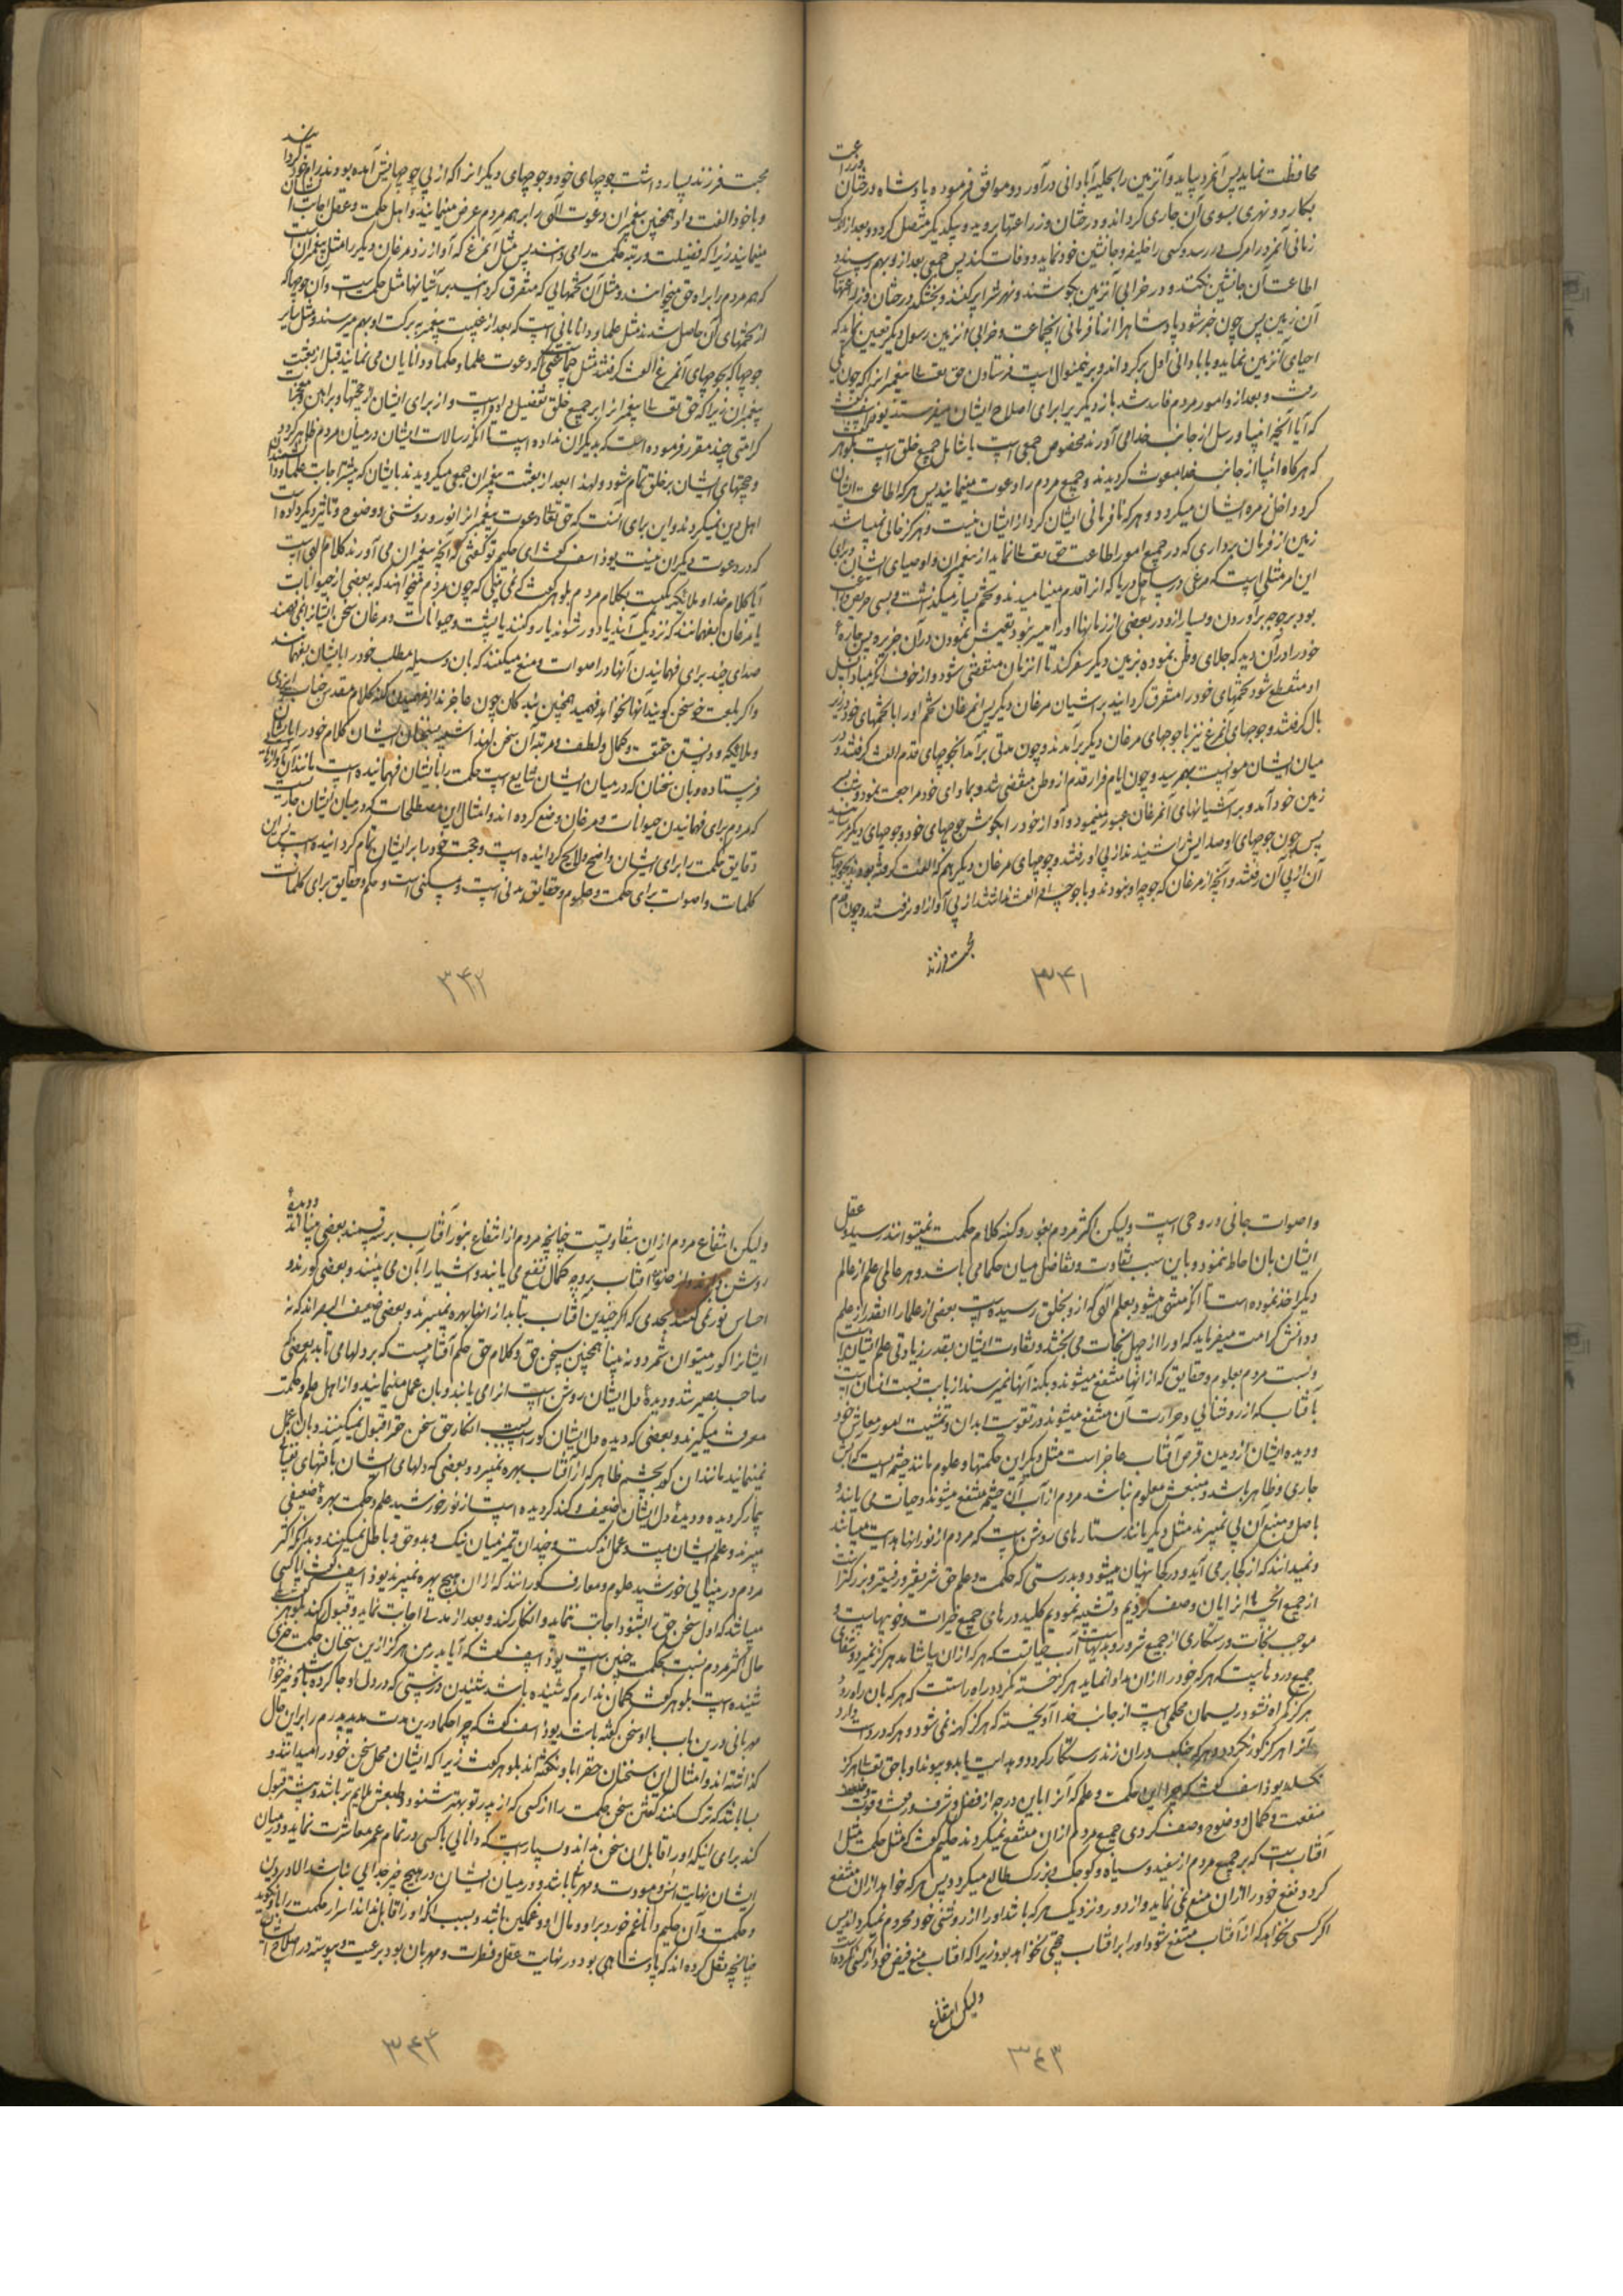 محافظت نماید پس آنمرد بیاید و آنزمین را بحلیه آبادانی درآورد و موافق فرموده پادشاه درختان و زراعت
بکارد و نهری بسوی آن جاری گرداند و درختان و زراعتها بروید و بیکدیگر متصل گردد و بعد از اندک
زمانی آنمزد را مرگ در رسد و کسی را خلیفه و جانشین خود نماید و وفات کند پس جمعی بعد از و بهم رسند و
اطاعت آن جانشین نکنند و در خرابی آنزمین بکوشند و نهرش را پر کنند و بخشکد درختان و زراعتهای
آن زمین پس چون خبر شود پادشاه را از نافرمانی آنجماعت و خرابی آنزمین رسول دیگر تعیین نماید که
احیای آنزمین نماید و بآبادانی اول برگرداند و برینمنوال است فرستادن حق تعالی پیغمبرانرا که چون یکی
رفت و بعد از و امور مردم فاسد شد باز دیگریرا برای اصلاح ایشان میفرستد یوذاسف گفت
که آیا آنچه انبیا و رسل از جانب خدا می آورند مخصوص جمعی است یا شامل جمیع خلق است بلوهر گفت
که هرگاه انبیا از جانب خدا مبعوث گردیدند و جمیع مردم را دعوت مینمایند پس هرکه اطاعت ایشان
کرد داخل زمره ایشان میگردد و هرکه نافرمانی ایشان کرد از ایشان نیست و هرگز خالی نمیباشد
زمین از فرمان برداری که در جمیع امور اطاعت حق تعالی نماید از پیغمبران و اوصیای ایشان و برای
این امر مثلی است که مرغی در ساحل دریا که انرا قدم مینامیدند و تخم بسیار میگذاشت و بسی حریص و راغب
بود بر جوجه برآوردن و بسیار ازو در بعضی از زمانها او را میسر نبود تعیش نمودن در آن جزیره پس چارهٔ
خود را در آن دید که جلای وطن نموده بزمین دیگر سفر کند تا انزمان منقضی شود و از خوف آنکه مبادا نسل
او منقطع شود تخمهای خود را متفرق گردانید بر آشیان مرغان دیگر پس آنمرغان تخم او را با تخمهای خود در زیر
بال گرفتند و جوجهای آنمرغ نیز با جوجهای مرغان دیگر برآمدند و چون مدتی برآمد آنجوجهای قدم الفت گرفتند و در
میان ایشان موانست بهم رسید و چون ایام فرار قدم از وطن منقضی شد و بماوای خود مراجعت نمود و شب
زمین خود آمد و بر آشیانهای آنمرغان عبور مینمود و آواز خود را بگوش جوجهای خود و جوجهای دیگر میرسانید
پس چون جوجهای او صدایش را شنیدند از پی او رفتند و جوجهای مرغان دیگر هم که الفت گرفته بودند بجوجهای
آن از پی آن رفتند و آنچه از مرغان که جوجه او نبودند و با جوجهٔ او الفت نداشتند از پی آواز او نرفتند و چون قدم
محبت فرزند
۳۴۱
محبت فرزند بسیار داشت جوجهای خود و جوجهای دیگرانرا که از پی جوجهایش آمده بودند برام خود گردانید
و با خود الفت داد همچنین پیغمبران دعوت الهی را بر همه مردم عرض مینمایند و اهل حکمت و عقل اجابت ایشان
مینمایند زیرا که فضیلت و رتبه حکمت را می دانند پس مثل آنمرغ که آواز زد مرغان دیگر را مثل پیغمبران است
که همه مردم را براه حق میخوانند و مثل آن تخمهایی که متفرق گردانید بر آشیانها مثل حکمت است و آن جوجها که
از تخمهای آن حاصل شدند مثل علما و دانایانی است که بعد از غیبت پیغمبر به برکت او بهم میرسند و مثل سایر
جوجها که بجوجهای آنمرغ الفت گرفتند مثل جماعتی که دعوت علما و حکما و دانایان می نمایند قبل از بعثت
پیغمبران زیرا که حق تعالی پیغمبرانرا بر جمیع خلق تفضیل داده است و از برای ایشان از حجتها و براهین و معجزات
کرامتی چند مقرر فرموده است که بدیگران نداده است تا آنکه رسالات ایشان در میان مردم ظاهر گردد
و حجتهای ایشان بر خلق تمام شود و لهذا بعد از بعثت پیغمبران جمعی میگرویدند بایشان که پیشتر اجابت علما و دانشمندان
اهل دین نمیکردند و این برای آنست که حق تعالی دعوت پیغمبرانرا نور و روشنی و وضوح و تاثیر دیگر داده است
که در دعوت دیگران نیست یوذاسف گفت ای حکیم تو گفتی که آنچه پیغمبران می آورند کلام الهی است
آیا کلام خدا و ملائکه نیست بکلام مردم بلوهر گفت که نمی بینی که چون مردم میخواهند که ببعضی از حیوانات
یا مرغان بفهمانند که نزدیک آیند یا دور شوند یا رو کنند یا پشت و حیوانات و مرغان سخن ایشانرا نمی فهمند
صدای چند برای فهمانیدن آنها در اصوات وضع میکنند که بآن وسیله مطلب خود را بایشان بفهمانند
و اگر بلغت خود سخن گویند آنها نخواهند فهمید همچنین بندگان چون عاجزند از فهمیدن کنه کلام مقدس جناب ایزدی
و ملائکه و دانستن حقیقت و کمال و لطف و مرتبه آن سخن لهذا شبیه بسخنان ایشان کلام خود را بایشان
فرستاده و بآن سخنان که در میان ایشان شایع است حکمت را بایشان فهمانیده است مانند آن آوازها
که مردم برای فهمانیدن حیوانات و مرغان وضع کرده اند و امثال این مصطلحات که در میان ایشان جاریست
دقایق حکمت را برای ایشان واضح و لایح گردانیده است و حجت خود را بر ایشان تمام گردانیده است پس این
کلمات و اصوات برای حکمت و علوم و حقایق بدنی است و مسکنی است و حکم و حقایق برای کلمات
۳۴۲
و اصوات جانی و روحی است ولیکن اکثر مردم بغور و کنه کلام حکمت نمیتوانند رسید و عقل
ایشان بآن احاطه ننمود و باین سبب تفاوت و تفاضل میان حکما می باشد و هر عالمی علم از عالم
دیگر اخذ نموده است تا آنکه منتهی میشود بعلم الهی که ازو بخلق رسیده است و بعضی از علما را آنقدر از علم
و دانش کرامت میفرماید که او را از جهل نجات می بخشد و تفاوت ایشان بقدر زیادتی علم ایشانست
و نسبت مردم بعلوم و حقایق که از آنها منتفع میشوند و بکنه آنها نمیرسند از بابت نسبت انسان است
بآفتاب که از روشنائی و حرارت آن منتفع میشوند در تقویت ابدان و تمشیت امور معاش خود
و دیده ایشان از دیدن قرص آفتاب عاجز است مثل دیگر این حکمتها و علوم مانند چشمه ایست که آبش
جاری و ظاهر باشد و منبعش معلوم نباشد مردم از آب آن چشمه منتفع میشوند و حیات می یابند و
باصل و منبع آن پی نمیبرند مثل دیگر مانند ستارهای روشن است که مردم از نور آنها هدایت مییابند
و نمیدانند که از کجا برمی آید و در کجا پنهان میشود و بدرستی که حکمت و علم حق شریفتر و رفیعتر و بزرگتر است
از جمیع آنچه ما آنرا بآن وصف کردیم و تشبیه نمودیم کلید درهای جمیع خیرات و خوبیهاست و
موجب نجات و رستگاری از جمیع شرور و بدیهاست آب حیاتست که هرکه ازان بیاشامد هرگز نمیرد و شفای
جمیع دردهاست که هرکه خود را ازان مداوا نماید هرگز خسته نگردد و راه راستست که هرکه بآن راه رود
هرگز گمراه نشود ریسمان محکمی است از جانب خدا آویخته که هرگز کهنه نمی شود و هرکه در دست دارد
آنرا هرگز کور نگردد و هرکه چنگ در آن زند رستگار گردد و هدایت یابد و پیوند او با حق تعالی هرگز
نگسلد یوذاسف گفت که چرا این حکمت و علم که آنرا باین درجه از فضل و شرف و رفعت و قوت و
منفعت و کمال و وضوح وصف کردی جمیع مردم ازان منتفع نمیگردند حکیم گفت که مثل حکمت مثل
آفتابست که بر جمیع مردم از سفید و سیاه و کوچک و بزرگ طالع میگردد پس هرکه خواهد ازان منتفع
گردد نفع خود را ازان منع نمی نماید و از دور و نزدیک هرکه باشد او را از روشنی خود محروم نمیگرداند پس
اگر کسی نخواهد که از آفتاب منتفع شود او را بر آفتاب حجتی نخواهد بود زیرا که آفتاب منع فیض خود از کسی نکرده است
ولیکن انتفاع
۳۴۳
ولیکن انتفاع مردم ازان متفاوتست چنانچه مردم از انتفاع بنور آفتاب بر سه قسمند بعضی بینااند و دیدهٔ
روشن دارند و از ضوء آفتاب بروجه کمال نفع می یابند و اشیا را بآن می بینند و بعضی کورند و
احساس نور نمی کنند بحدی که اگر چندین آفتاب بتابد از آنها بهره نمیبرند و بعضی ضعیف البصراند که نه
ایشانرا کور میتوان شمرد و نه بینا همچنین سخن حق و کلام حق حکم آفتابیست که بر دلها می تابد بعضی که
صاحب بصیرتند و دیدهٔ دل ایشان روشن است آنرا می یابند و بآن عمل مینمایند و از اهل علم و حکمت
معرفت میگیرند و بعضی که دیده دل ایشان کور است انکار حق سخن حق را قبول نمیکنند و بآن عمل
نمینمایند مانند آن کور بچشم ظاهر که از آفتاب بهره نمیبرد و بعضی که دلهای ایشان بآفتهای نفسانی
بیمار گردیده و دیدهٔ دل ایشان ضعیف و کند گردیده است از نور خورشید علم و حکمت بهره ضعیفی
میبرند و علم ایشان پست و عمل اندکست و چندان تمیز میان نیک و بد و حق و باطل نمیکنند و بدانکه اکثر
مردم در بینایی خورشید علوم و معارف کورانند که ازان هیچ بهره نمیبرند یوذاسف گفت آیا کسی
میباشد که اول سخن حق را بشنود اجابت ننماید و انکار کند و بعد از مدتی اجابت نماید و قبول کند بلوهر گفت بلی
حال اکثر مردم نسبت بحکمت چنین است یوذاسف گفت که آیا پدر من هرگز ازین سخنان حکمت چیزی
شنیده است بلوهر گفت گمان ندارم که شنیده باشد شنیدن درستی که در دل او جا کرده باشد و خیرخواه
مهربانی درین باب با او سخن گفته باشد یوذاسف گفت که چرا حکما درین مدت مدید پدرم را بر این حال
گذاشته اند و امثال این سخنان حق را باو نگفته اند بلوهر گفت زیرا که ایشان محل سخن خود را میدانند و
بسا باشد که ترک کنند گفتن سخن حکمت را از کسی که از پدر تو بهتر شنود و طبعش ملایم تر باشد و بیشتر قبول
کند برای اینکه او را قابل آن سخن نداند و بسیار است که دانایی با کسی در تمام عمر معاشرت نماید و در میان
ایشان نهایت انس و مودت و مهربانی باشد و در میان ایشان در هیچ چیز جدایی نباشد الا در دین
و حکمت و آن حکیم دانا غم خورد بر او و بر حال او و غمگین باشد و بسبب آنکه او را قابل نداند اسرار حکمت را باو نگوید
چنانچه نقل کرده اند که پادشاهی بود در نهایت عقل و فطرت و مهربان بود برعیت و پیوسته در اصلاح ایشان
۳۴۴